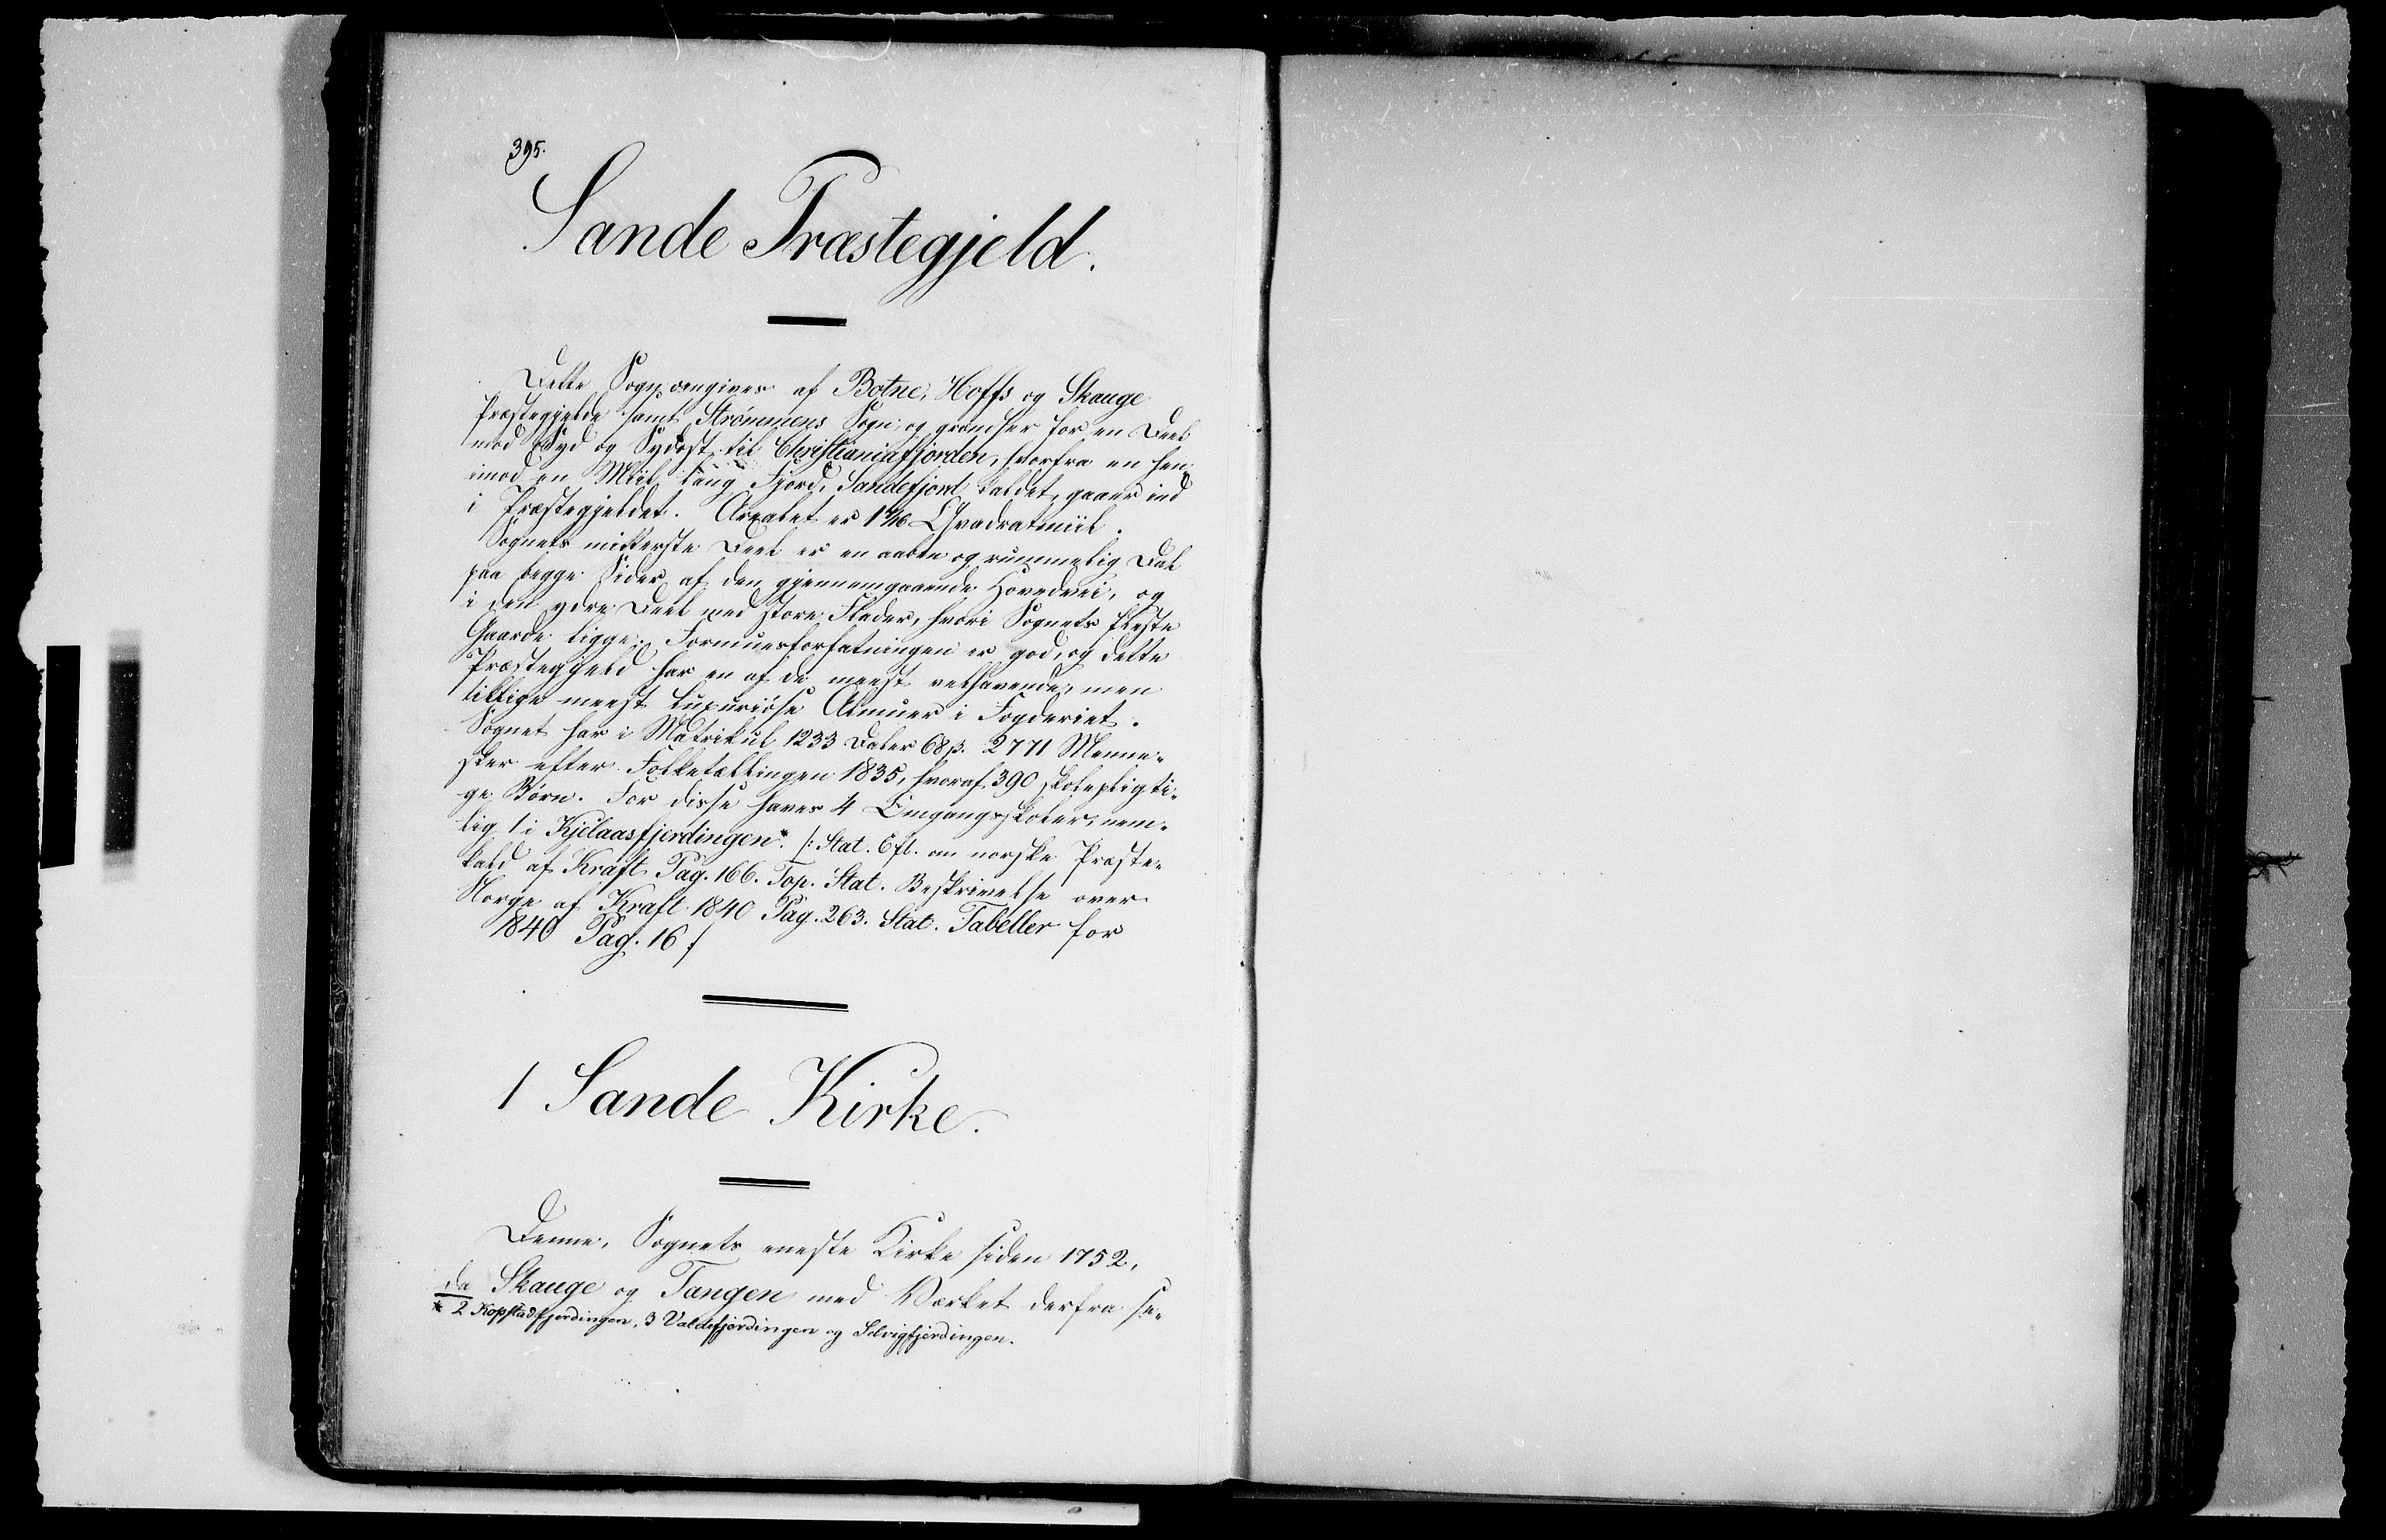 395.
Sande Præstegjeld.
Dette Sogn omgives af Botne, Hoffs og Skauge
Præstegjelde samt Strömmens Sogn, og grændser for en Deel
mod Syd og Sydost til Christianiafjorden, hvorfra en hen-
imod en Miil lang Fjord, Sandefjord kaldet, gaaer ind
i Præstegjeldet. Arealet er Qvadratmiil.
Sognets midterste Deel er en aaben og rummelig Dal
paa begge Sider af den gjennemgaaende Hovedvei, og
i den ydre Deel med store Flader, hvori Sognets fleste
Gaarde ligge. Formuesforfatningen er god, og dette
Præstegjeld har en af de meest velhavende, men
tillige meest luxuriöse Almuer i Fogderiet.
Sognet har i Matrikul 1233 Daler 68 β. 2771 Menne-
sker efter Folketællingen 1835, hvoraf 390 skolepligti-
ge Börn. For disse haves 4 Omgangsskoler, nem-
lig 1 i Kjelaasfjerdingen* /: Stat. Eft. om norske Præste-
kald af Kraft Pag. 166. Top. Stat. Beskrivelse over
Norge af Kraft 1840 Pag. 263. Stat. Tabeller for
1840 Pag. 16 /
1 Sande Kirke.
Denne, Sognets eneste Kirke siden 1752,
da Skauge og Tangen med Værket derfra se-
* 2 Kopstadfjerdingen, 3 Valdefjerdingen og Selvigfjerdingen.